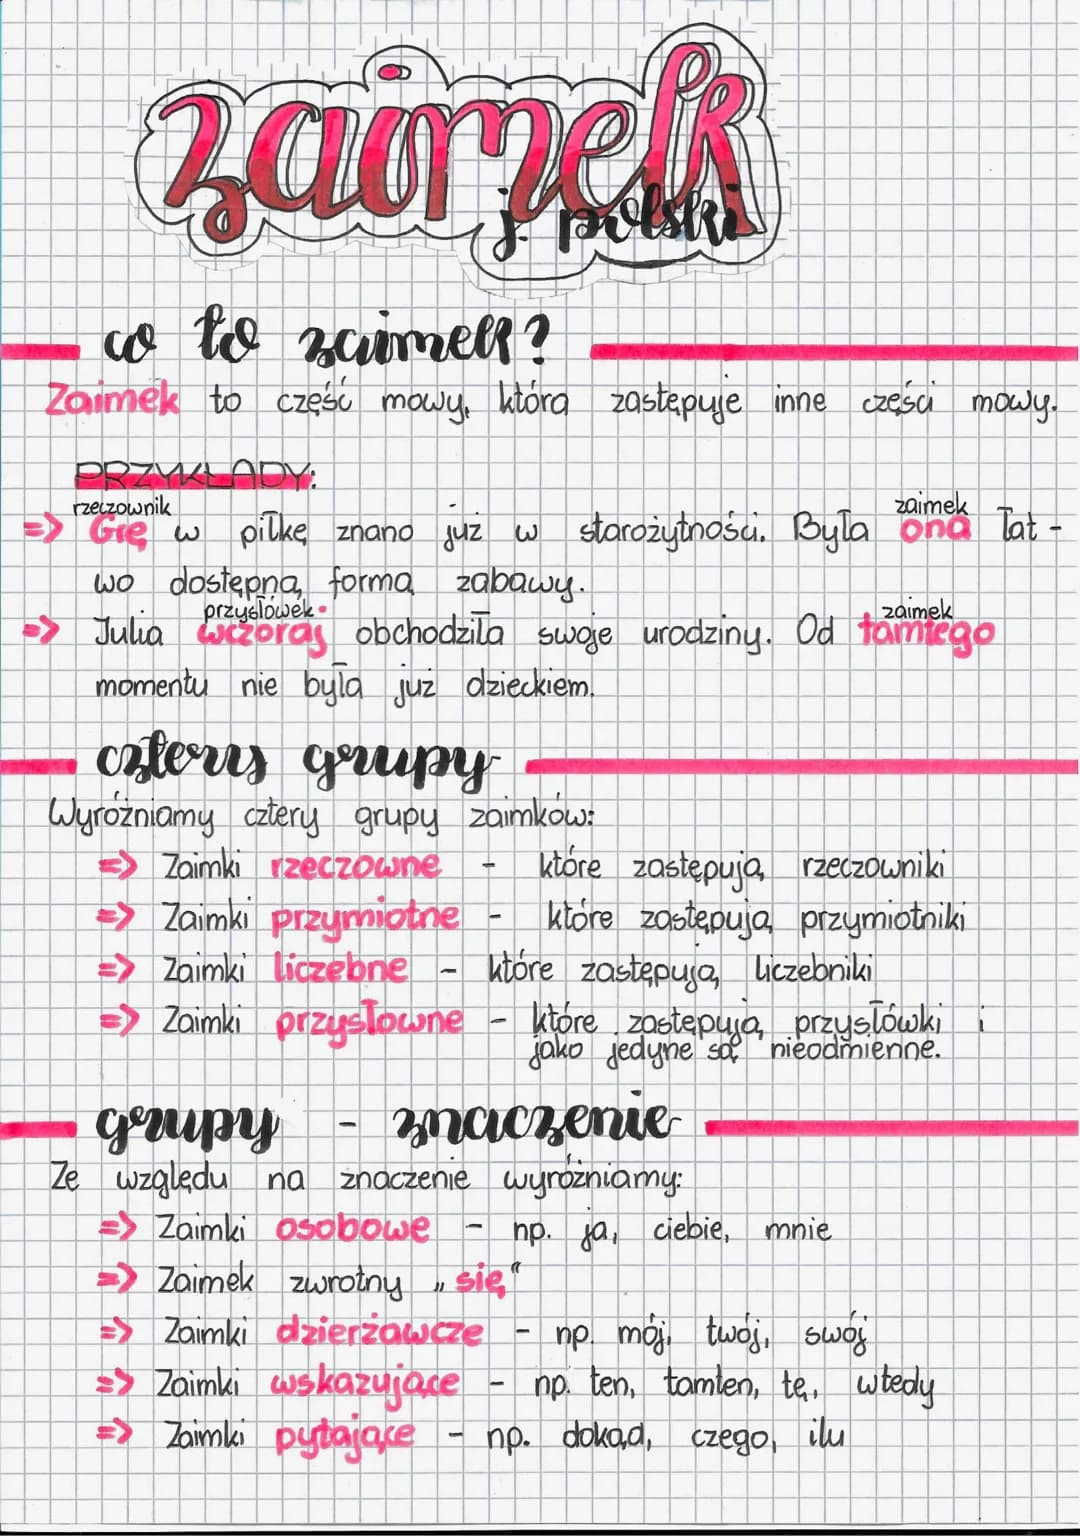 zaimek
j. polski
co to zaimek?
Zaimek to część mowy, która zastępuje inne części mowy.
PRZYKŁADY:
rzeczownik zaimek
=> Grę w piłkę znano już w starożytności. Była ona łat-
wo dostępną formą zabawy.
przysłówek zaimek
=> Julia wczoraj obchodziła swoje urodziny. Od tamtego
momentu nie była już dzieckiem.
cztery grupy
Wyróżniamy cztery grupy zaimków:
=> Zaimki rzeczowne - które zastępują rzeczowniki
=> Zaimki przymiotne - które zastępują przymiotniki
=> Zaimki liczebne - które zastępują liczebniki
=> Zaimki przysłowne - które zastępują przysłówki i
jako jedyne są nieodmienne.
grupy - znaczenie
Ze względu na znaczenie wyróżniamy:
=> Zaimki osobowe - np. ja, ciebie, mnie
=> Zaimek zwrotny „się"
=> Zaimki dzierżawcze - np. mój, twój, swój
=> Zaimki wskazujące - np. ten, tamten, tę, wtedy
=> Zaimki pytające - np. dokąd, czego, ilu